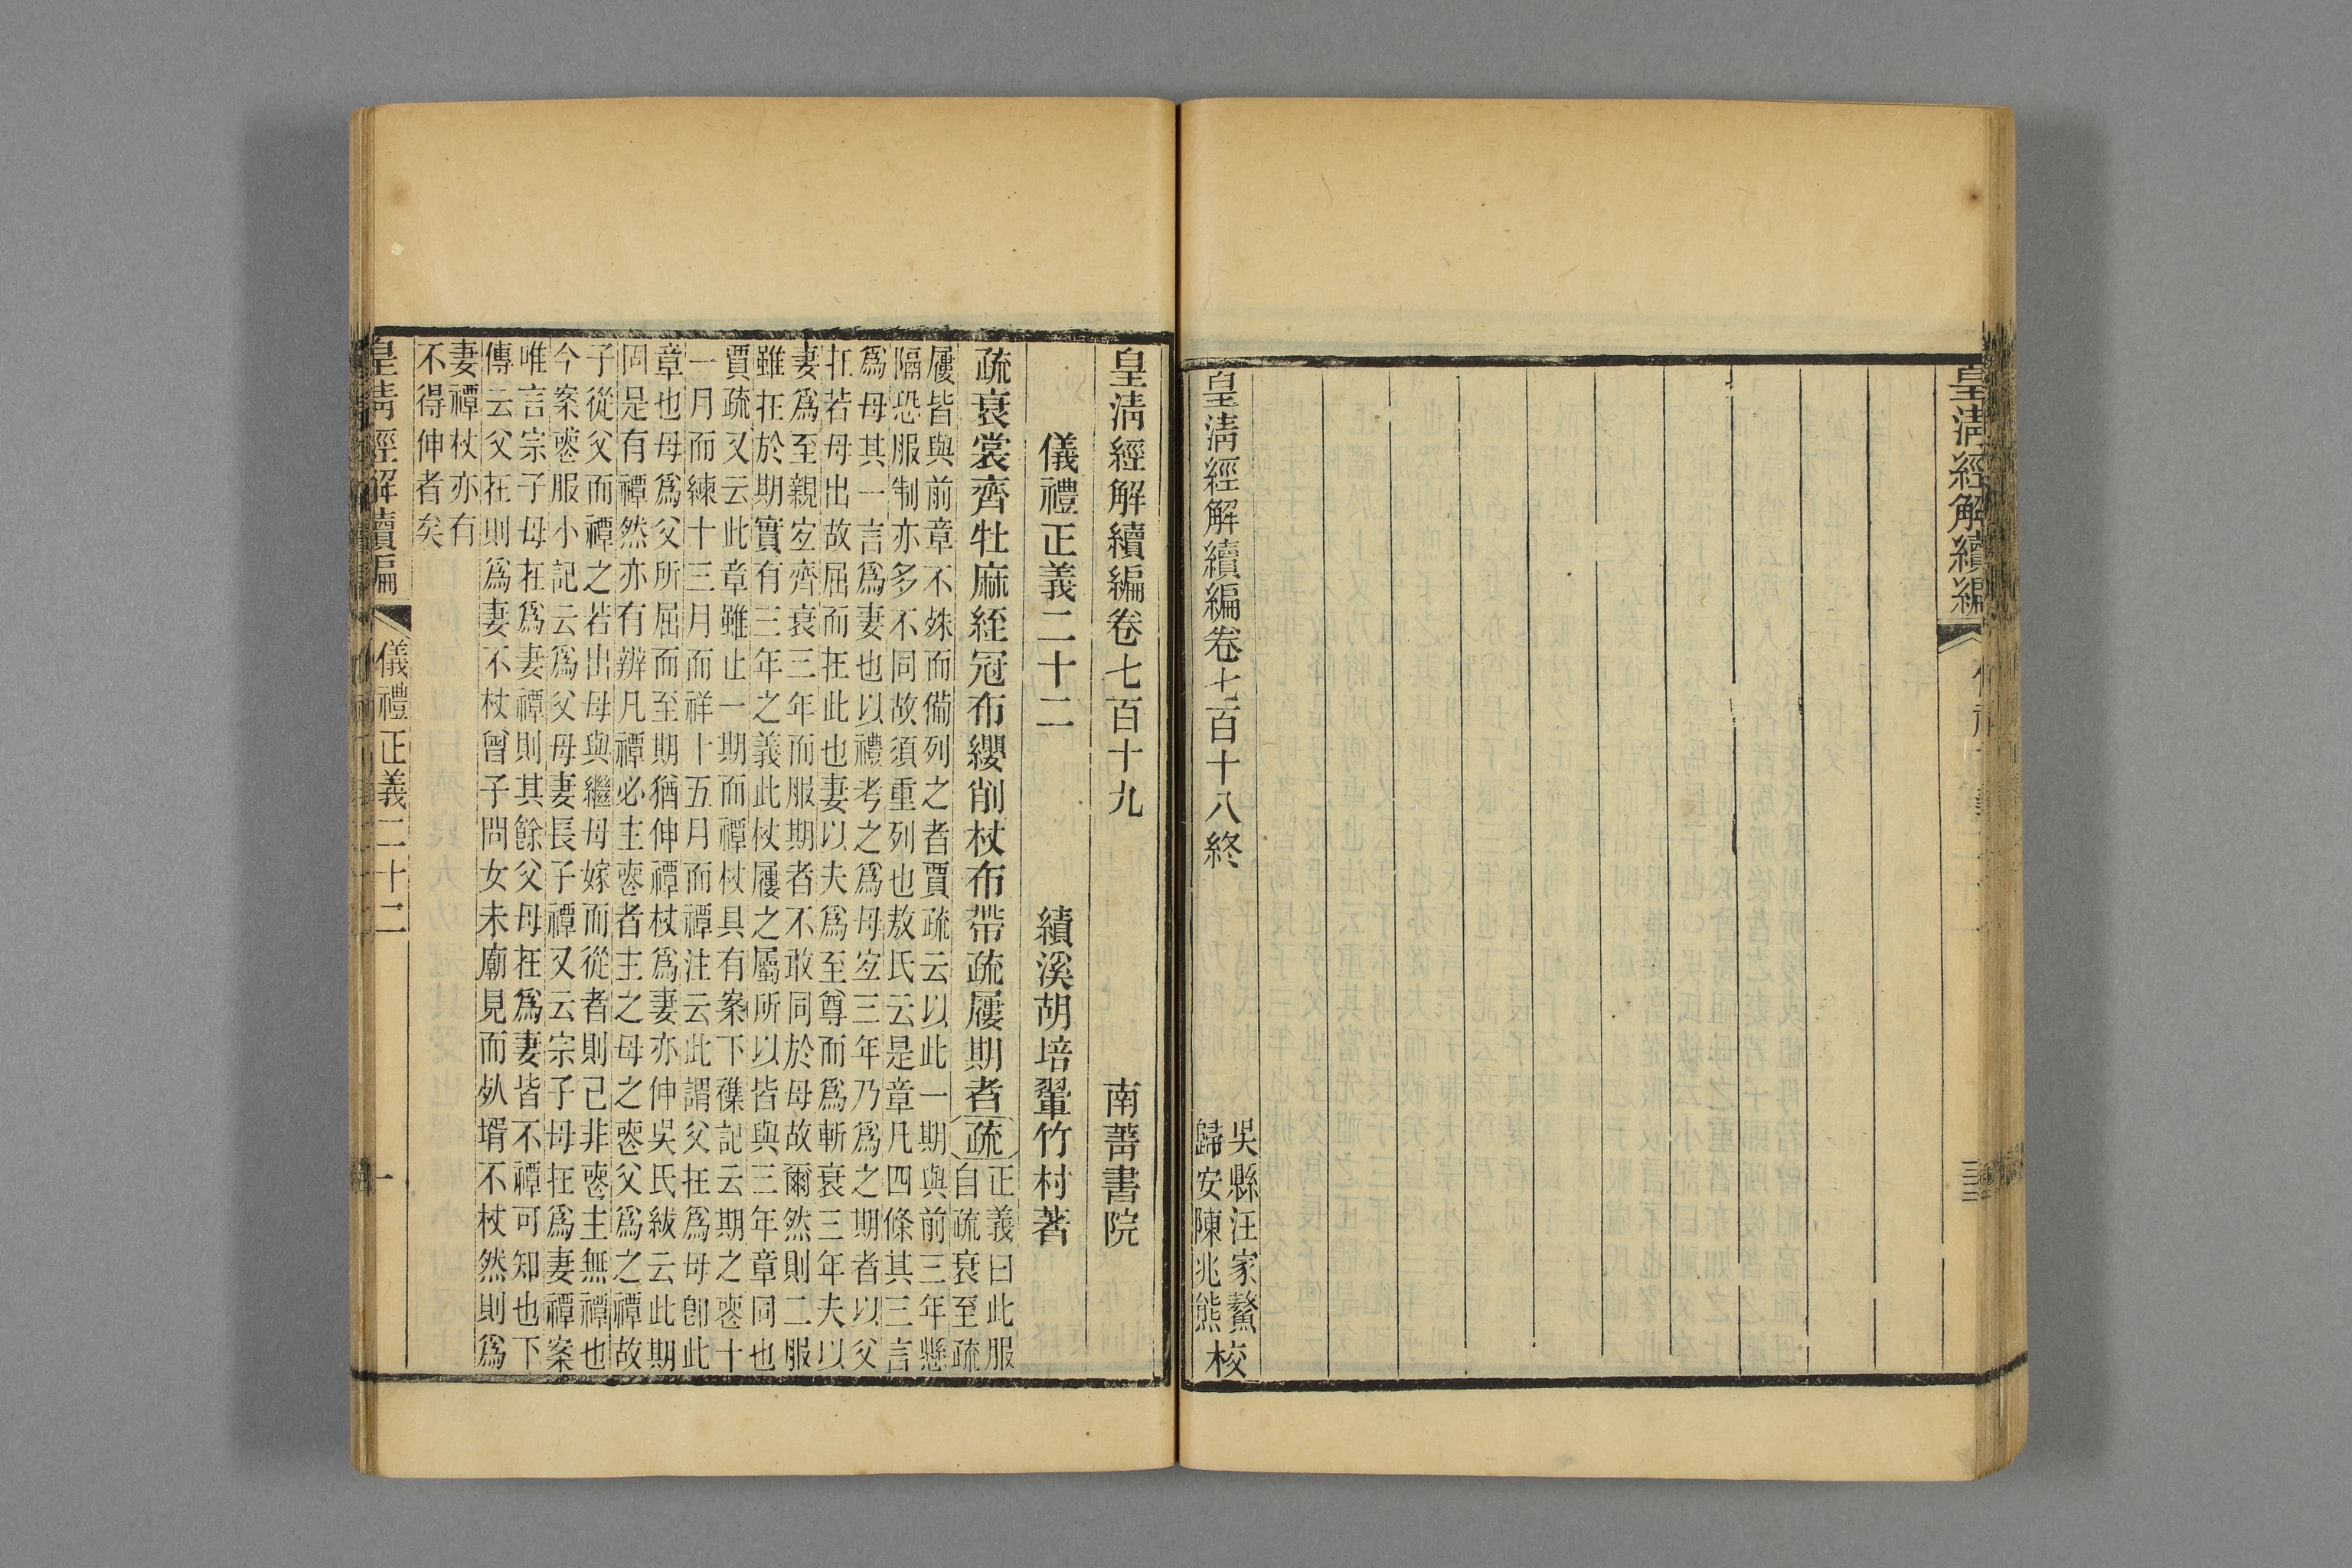 皇清經解續編
三
皇清經解續編卷七百十八終
吳縣汪家鰲
歸安陳兆熊
校
皇清經解續編卷七百十九　南菁書院
儀禮正義二十二　績溪胡培翬竹村著
疏衰裳齊牡麻絰冠布纓削杖布帶疏屨期者疏
正義曰此服
自疏衰至疏
屨皆與前章不殊而備列之者賈疏云以此一期與前三年懸
隔恐服制亦多不同故須重列也敖氏云是章凡四條其三言
爲母其一言爲妻也以禮考之爲母宐三年乃爲之期者以父
在若母出故屈而在此也妻以夫爲至尊而爲斬衰三年夫以
妻爲至親宐齊衰三年而服期者不敢同於母故爾然則二服
雖在於期實有三年之義此杖屨之屬所以皆與三年章同也
賈疏又云此章雖止一期而禫杖具有案下襍記云期之喪十
一月而練十三月而祥十五月而禫注云此謂父在爲母卽此
章也母爲父所屈而至期猶伸禫杖爲妻亦伸吳氏紱云此期
同是有禫然亦有辨凡禫必主喪者主之母之喪父爲之禫故
子從父而禫之若出母與繼母嫁而從者則己非喪主無禫也
今案喪服小記云爲父母妻長子禫又云宗子母在爲妻禫案
唯言宗子母在爲妻禫則其餘父母在爲妻皆不禫可知也下
傳云父在則爲妻不杖曾子問女未廟見而死壻不杖然則爲
妻禫杖亦有
不得伸者矣
皇清經解續編　儀禮正義二十二　一